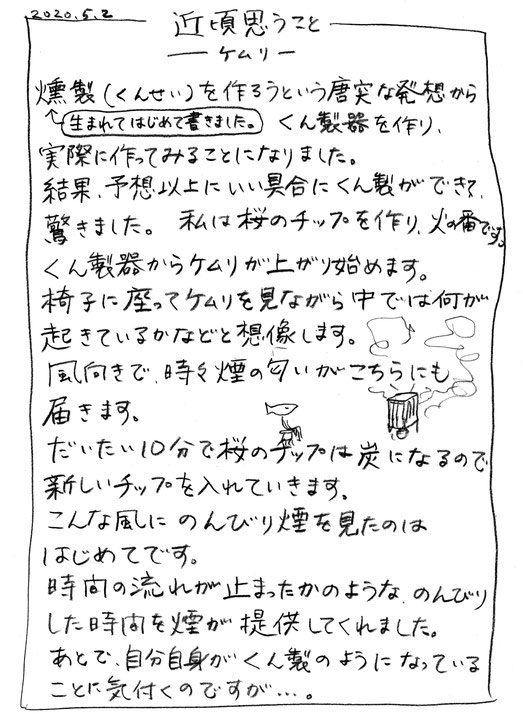 2020.5.2
近頃思うこと
ーケムリー
燻製(くんせい)を作ろうという唐突な発想から
生まれてはじめて書きました。 くん製器を作り、
実際に作ってみることになりました。
結果、予想以上にいい具合にくん製ができて、
驚きました。 私は桜のチップを作り、火の番です。
くん製器からケムリが上がり始めます。
椅子に座ってケムリを見ながら中では何が
起きているかなどと想像します。
風向きで、時々煙の匂いがこちらにも
届きます。
だいたい10分で桜のチップは炭になるので
新しいチップを入れていきます。
こんな風にのんびり煙を見たのは
はじめてです。
時間の流れが止まったかのような、のんびり
した時間を煙が提供してくれました。
あとで、自分自身がくん製のようになっている
ことに気付くのですが…。